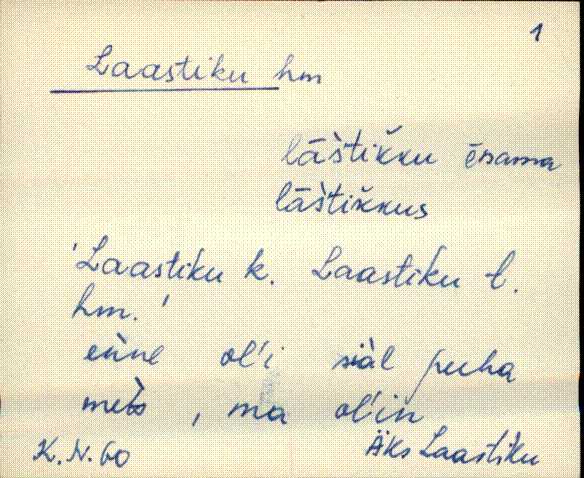 1
Laastiku hm
lāštikku ērama
lāštikkus
'Laastiku k. Laastiku t.
hm.'
enne ol'i siàl puha
mets, ma ol'in
K.N.60 Äks Laastiku